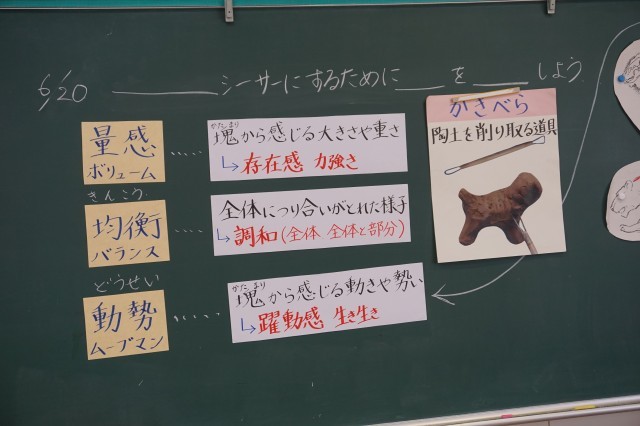 6/20 ______シーサーにするために___を____しよう
量感
ボリューム
……
かたまり
塊から感じる大きさや重さ
↳存在感 力強さ
きんこう
均衡
バランス
……
全体につり合いがとれた様子
↳調和(全体 全体と部分)
どうせい
動勢
ムーブマン
……
かたまり
塊から感じる動きや勢い
↳躍動感 生き生き
かきべら
陶土を削り取る道具